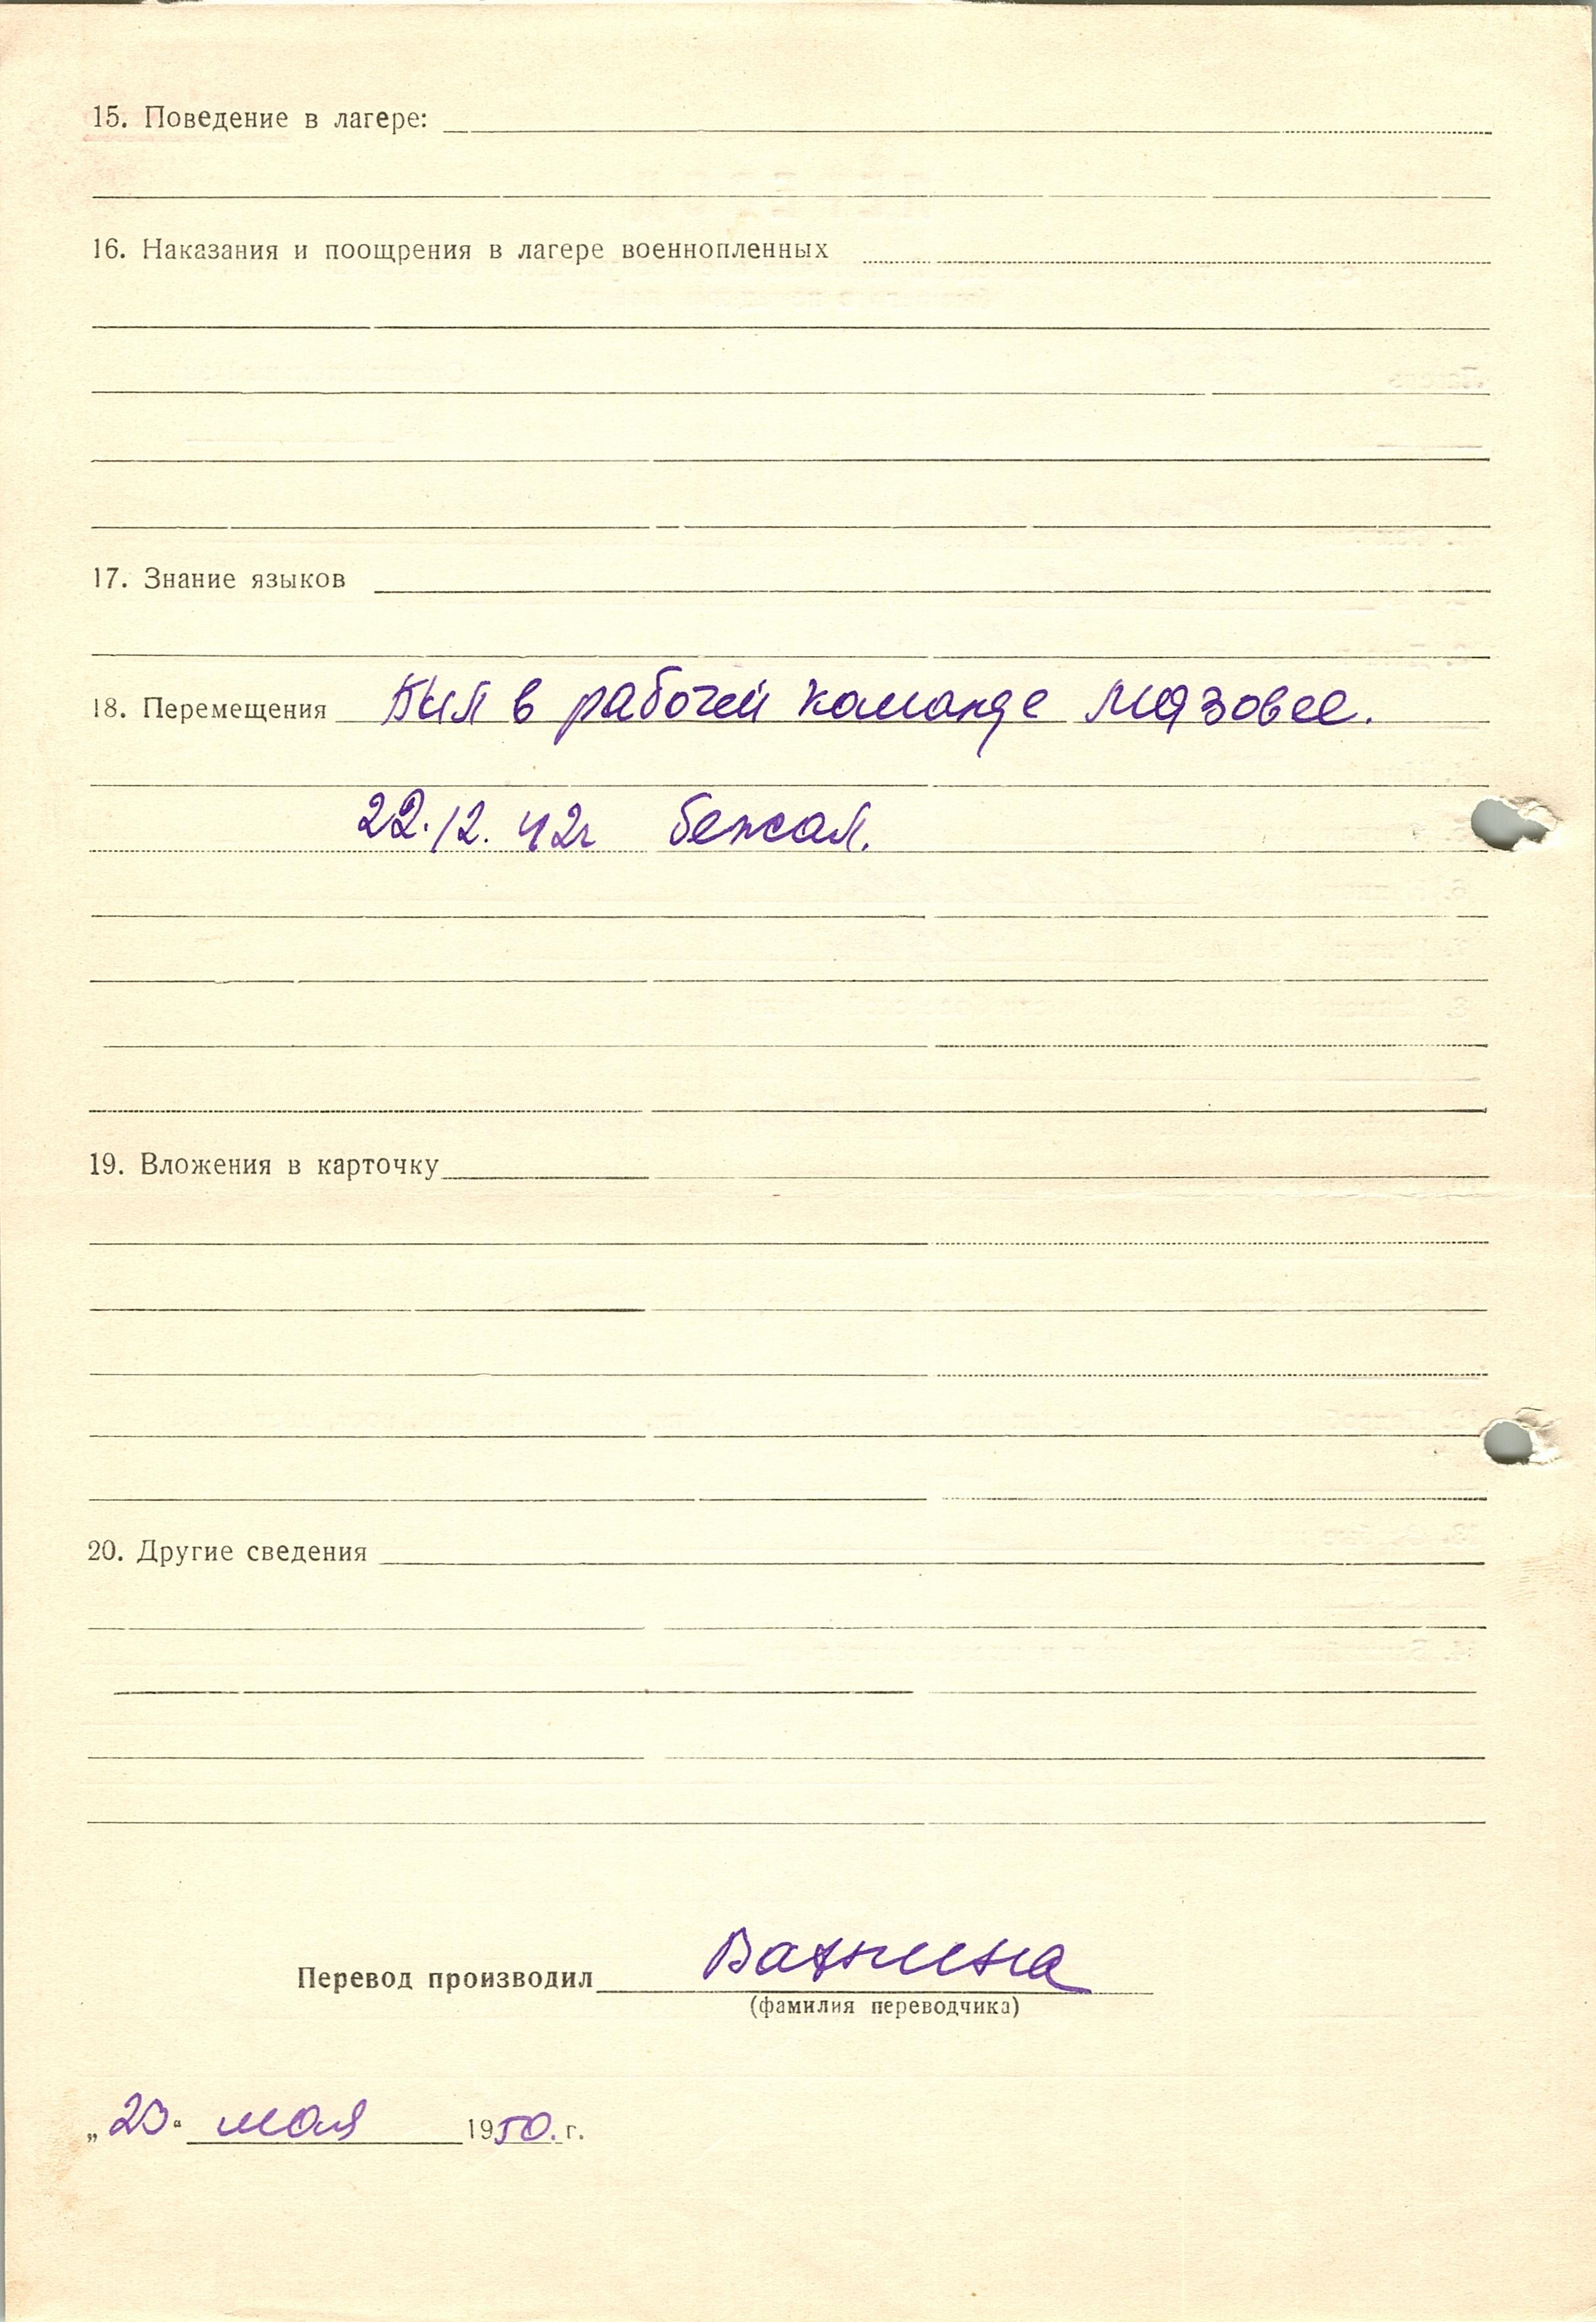 15. Поведение в лагере:
16. Наказания и поощрения в лагере военнопленных
17. Знание языков
18. Перемещения Был в рабочей команде Мязовее.
22.12.42г бежал.
19. Вложения в карточку
20. Другие сведения
Перевод производил
(фамилия переводчика)
„23" мая 1950. г.